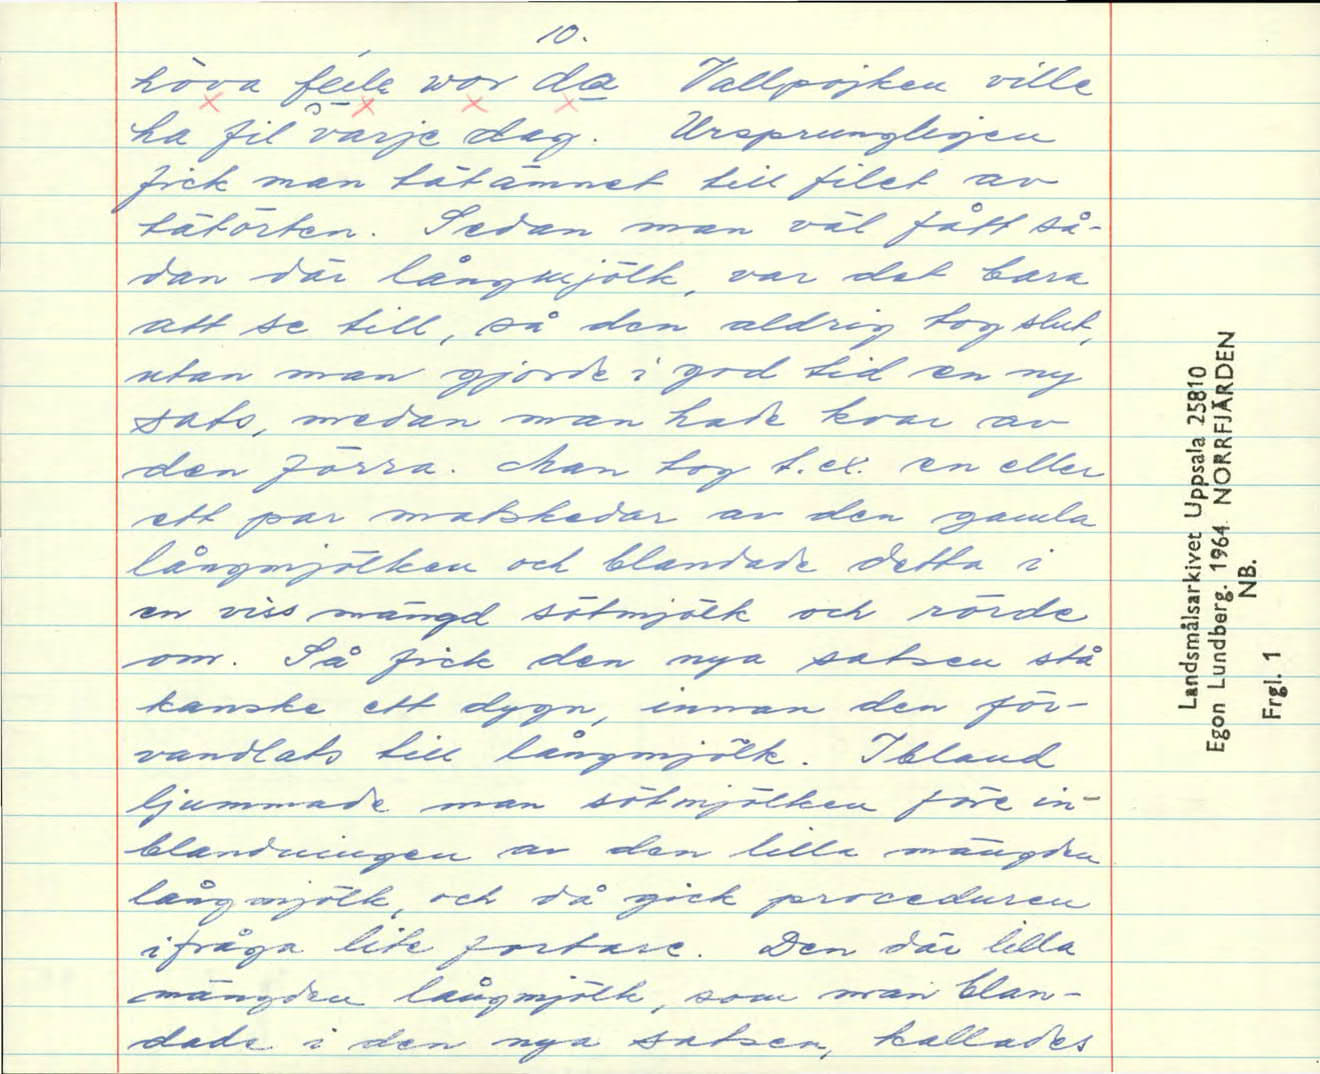 10.
höva feele wor da Vallpojken ville
ha fil varje dag. Ursprungligen
fick man tätämnet till filet av
tätörten. Sedan man väl fått så-
dan där långmjölk, var det bara
att se till, så den aldrig tog slut,
utan man gjorde i god tid en ny
sats, medan man hade kvar av
den förra. Man tog t.ex. en eller
ett par matskedar av den gamla
långmjölken och blandade detta i
en viss mängd sötmjölk och rörde
om. Så fick den nya satsen stå
kanske ett dygn, innan den för-
vandlats till långmjölk. Ibland
ljummade man sötmjölken före in-
blandningen av den lilla mängden
långmjölk, och då gick proceduren
ifråga lite fortare. Den där lilla
mängden långmjölk, som man blan-
dade i den nya satsen, kallades
Landsmålsarkivet Uppsala 25810
Egon Lundberg. 1964. NORRFJÄRDEN
NB.
Frgl. 1